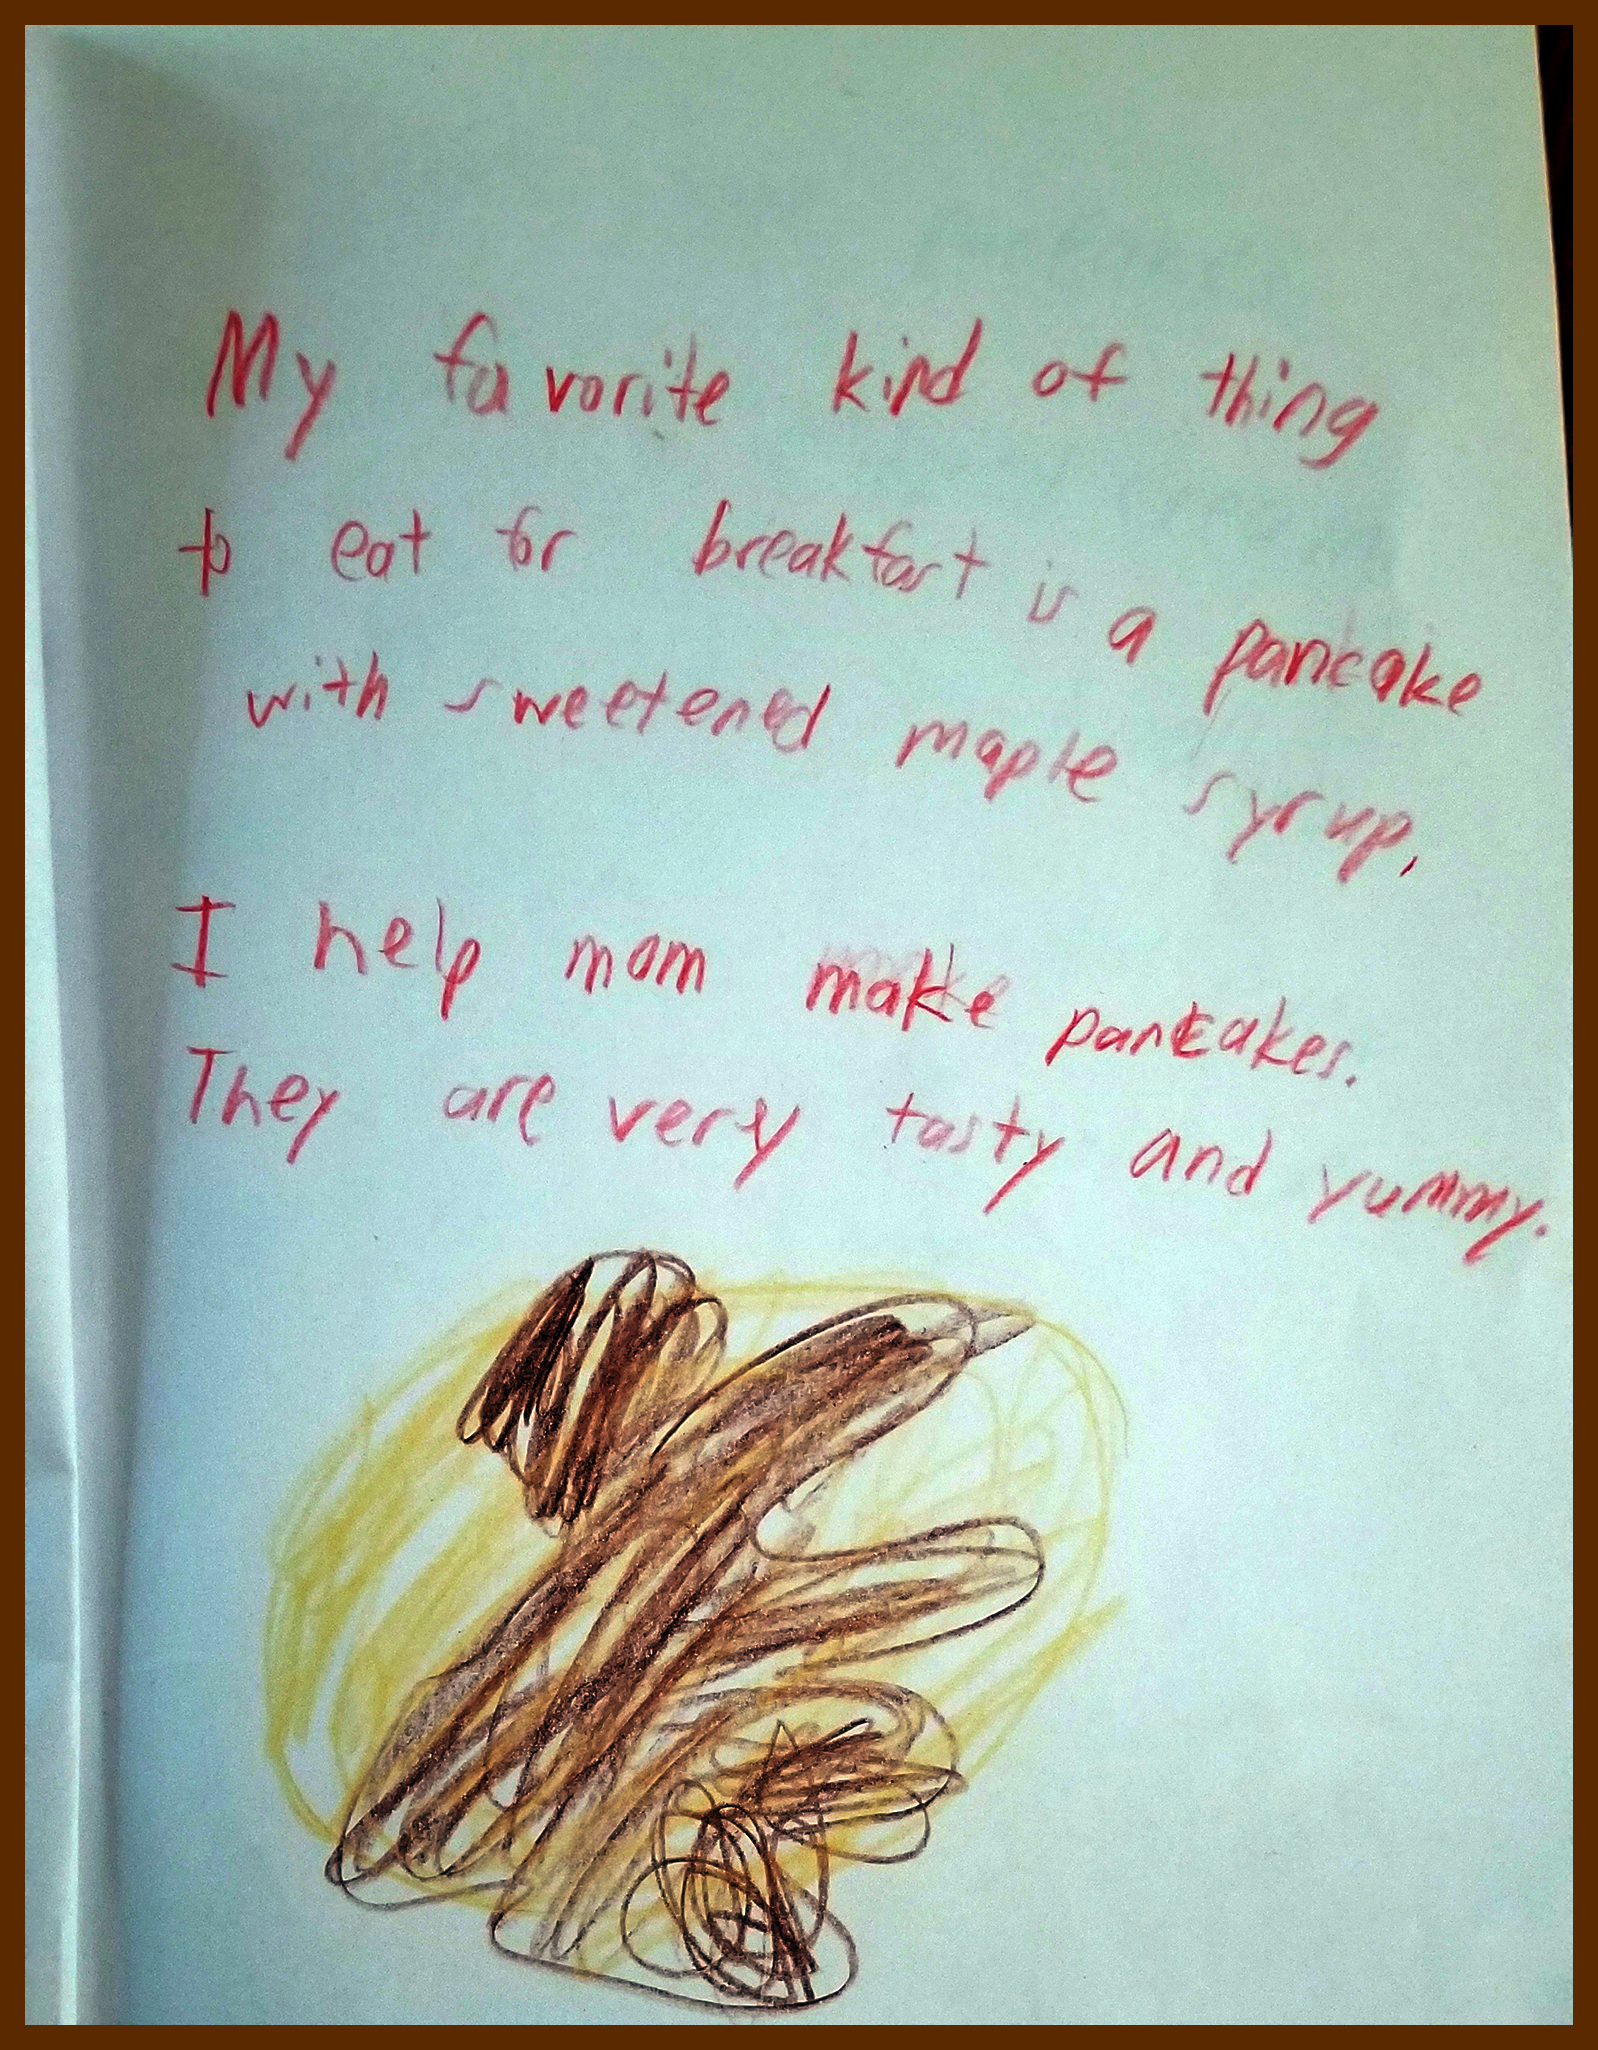 My favorite kind of thing
to eat for breakfast is a pancake
with sweetened maple syrup.
I help mom make pancakes.
They are very tasty and yummy.